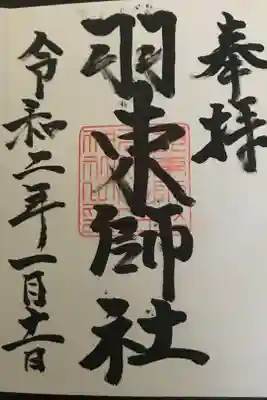 奉拝
羽束師社
令和二年一月十一日